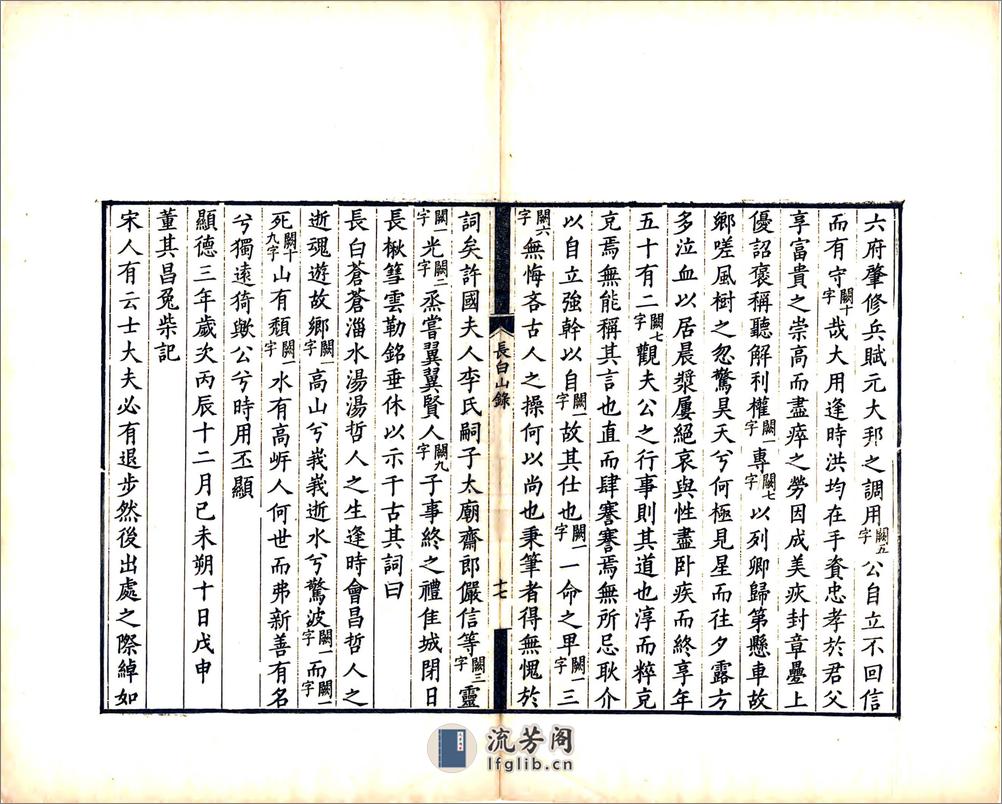 六府肇修兵賦元大邦之調用闕五字公自立不回信
而有守闕十字哉大用逢時洪均在手資忠孝於君父
享富貴之崇高而盡瘁之勞因成美疢封章疊上
優詔褒稱聽解利權闕一字專闕七字以列卿歸第懸車故
鄉嗟風樹之忽驚昊天兮何極見星而往夕露方
多泣血以居晨漿屢絕哀與性盡卧疾而終享年
五十有二闕七字觀夫公之行事則其道也淳而粹克
克焉無能稱其言也直而肆謇謇焉無所忌耿介
以自立強幹以自闕一字故其仕也闕一字一命之卑闕一字三
闕六字無悔吝古人之操何以尚也秉筆者得無愧於
長白山錄
十七
詞矣許國夫人李氏嗣子太廟齋郎儼信等闕三字靈
闕一字光闕二字烝嘗翼翼賢人闕九字子事終之禮隹城閉日
長楸篲雲勒銘垂休以示千古其詞曰
長白蒼蒼淄水湯湯哲人之生逢時會昌哲人之
逝魂遊故鄉闕一字高山兮峩峩逝水兮驚波闕一字而闕一字
死闕十九字山有頹闕一字水有高岍人何世而弗新善有名
兮獨遠猗歟公兮時用丕顯
顯德三年歲次丙辰十二月己未朔十日戊申
董其昌兔柴記
宋人有云士大夫必有退步然後出處之際綽如
流芳阁
lfglib.cn